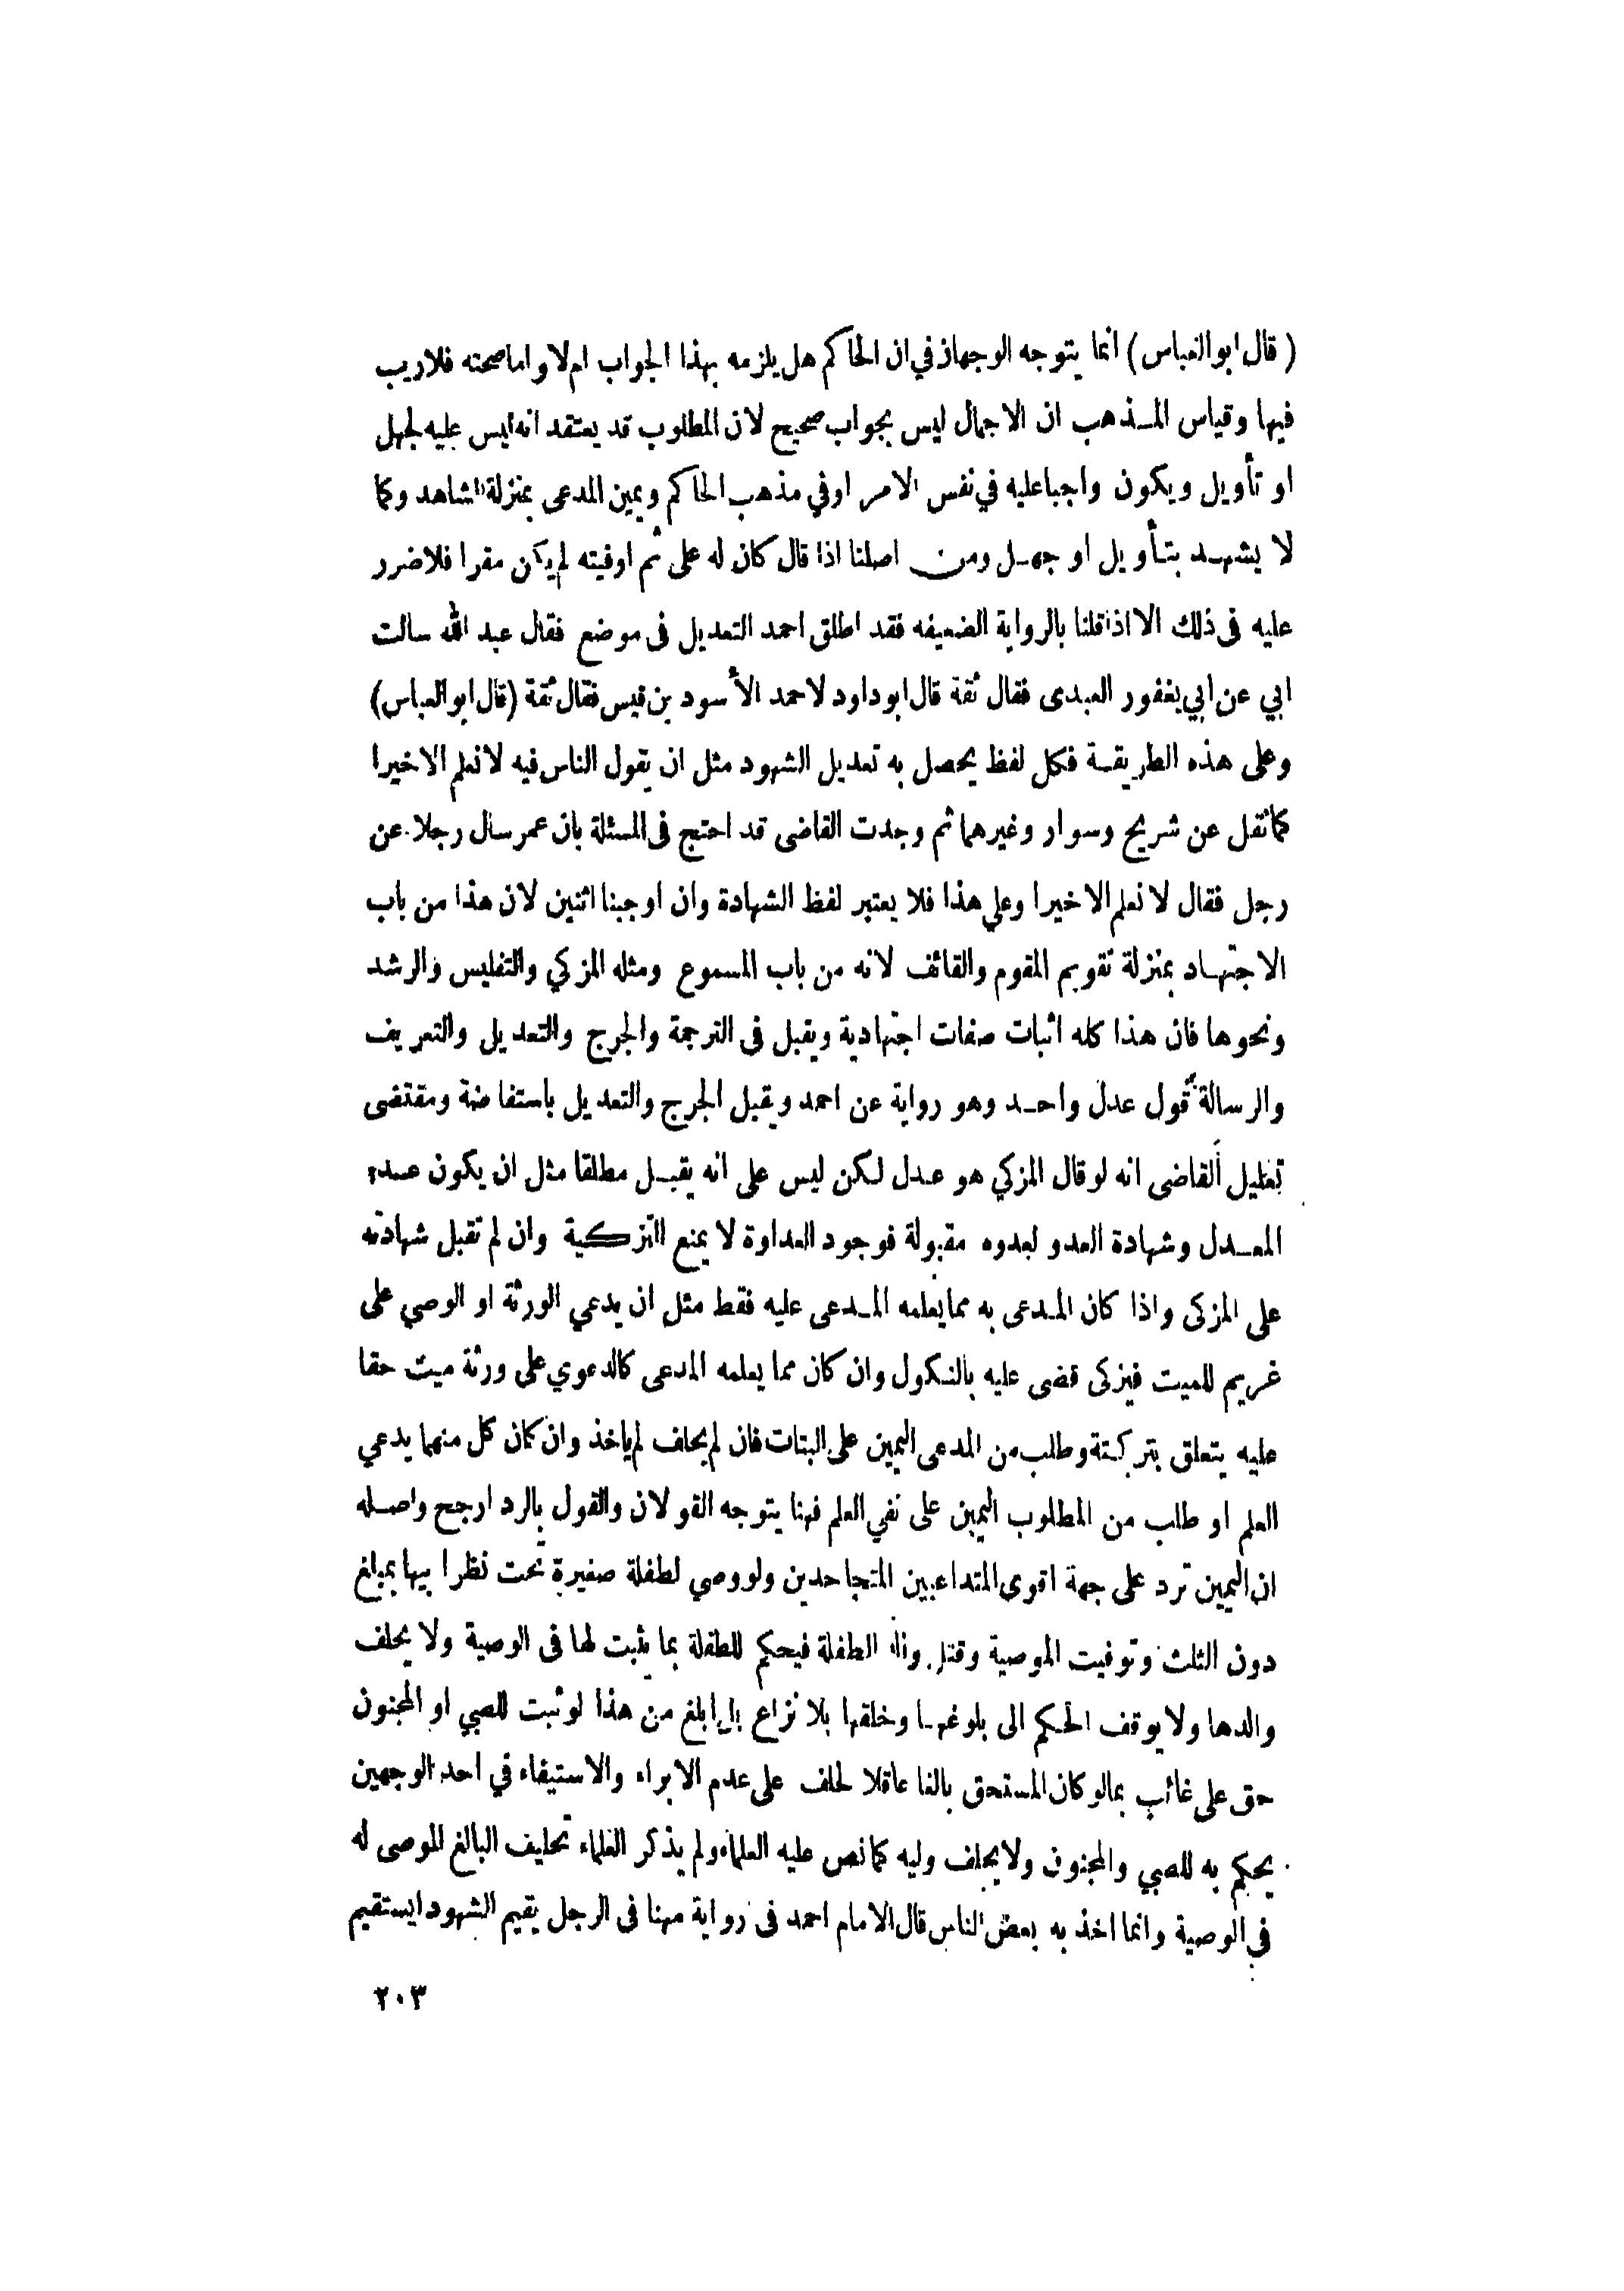 ( قال ابو العباس ) انما يتوجه الوجهان في ان الحاكم هل يلزمه بهذا الجواب ام لا واما صحته فلا ريب
فيها وقياس المذهب ان الاجمال ليس بجواب صحيح لان المطلوب قد يعتقد انه ليس عليه لجهل
او تأويل ويكون واجبا عليه في نفس الامر او في مذهب الحاكم ويمين المدعى بمنزلة الشاهد وكما
لا يشهد بتأويل او جهل ومن اصلنا اذا قال كان له على ثم اوفيته لم يكن مقرا فلا ضرر
عليه فى ذلك الا اذا قلنا بالرواية الضعيفه فقد اطلق احمد التعديل فى موضع فقال عبد الله سالت
ابي عن ابي يغفور العبدى فقال ثقة قال ابو داود لاحمد الأسود بن قيس فقال ثقة (قال ابو العباس)
وعلى هذه الطريقة فكل لفظ يحصل به تعديل الشهود مثل ان يقول الناس فيه لا نعلم الا خيرا
كما نقل عن شريح وسوار وغيرهما ثم وجدت القاضى قد احتج فى المسئلة بان عمر سال رجلا عن
رجل فقال لا نعلم الا خيرا وعلي هذا فلا يعتبر لفظ الشهادة وان اوجبنا اثنين لان هذا من باب
الاجتهاد بمنزلة تقويم المقوم والقائف لانه من باب المسموع ومثله المزكي والتفليس والرشد
ونحوها فان هذا كله اثبات صفات اجتهادية ويقبل فى الترجمة والجرح والتعديل والتعريف
والرسالة قول عدل واحد وهو رواية عن احمد ويقبل الجرح والتعديل باستفاضة ومقتضى
تعليل القاضى انه لو قال المزكي هو عدل لكن ليس على انه يقبل مطلقا مثل ان يكون عدو
المعدل وشهادة العدو لعدوه مقبولة فوجود العداوة لا يمنع التزكية وان لم تقبل شهادته
على المزكى واذا كان المدعى به مما يعلمه المدعى عليه فقط مثل ان يدعي الورثة او الوصي على
غريم للميت فيزكى قضى عليه بالنكول وان كان مما يعلمه المدعى كالدعوي على ورثة ميت حقا
عليه يتعلق بتركتة وطلب من المدعى اليمين على البتات فان لم يحلف لم ياخذ وان كان كل منهما يدعي
العلم او طلب من المطلوب اليمين على نفي العلم فهنا يتوجه القولان والقول بالرد ارجح واصله
ان اليمين ترد على جهة اقوى المتداعيين المتجاحدين ولو وصي لطفلة صغيرة تحت نظر ابيها بمبلغ
دون الثلث وتوفيت الموصية وقتل والد الطفلة فيحكم للطفلة بما يثبت لها فى الوصية ولا يحلف
والدها ولا يوقف الحكم الى بلوغها وخلقها بلا نزاع بل ابلغ من هذا لو ثبت للصبي او المجنون
حق على غائب بما لو كان المستحق بالغا عاقلا لحلف على عدم الابراء والاستيفاء في احد الوجهين
يحكم به للصبي والمجنون ولا يحلف وليه كما نص عليه العلماء ولم يذكر العلماء تحليف البالغ الموصى له
في الوصية وانما اخذ به بعض الناس قال الامام احمد فى رواية مهنا فى الرجل يقيم الشهود ايستقيم
٢٠٣